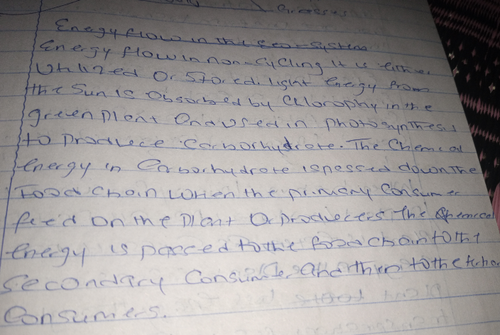 process
Energy flow in the Eco-System
Energy flow in non-cycling It is either
Utilized Or Stored. light Energy from
the Sun is absorbed by chlorophy in the
green plant and used in photosynthesis
to produce carbohydrate. The Chemical
Energy in Carbohydrate is passed down the
Food chain when the primary Consumer
feed on the plant Or producers. The chemical
Energy is passed to the food chain to the
Secondary Consume, and then to the
Consumers.